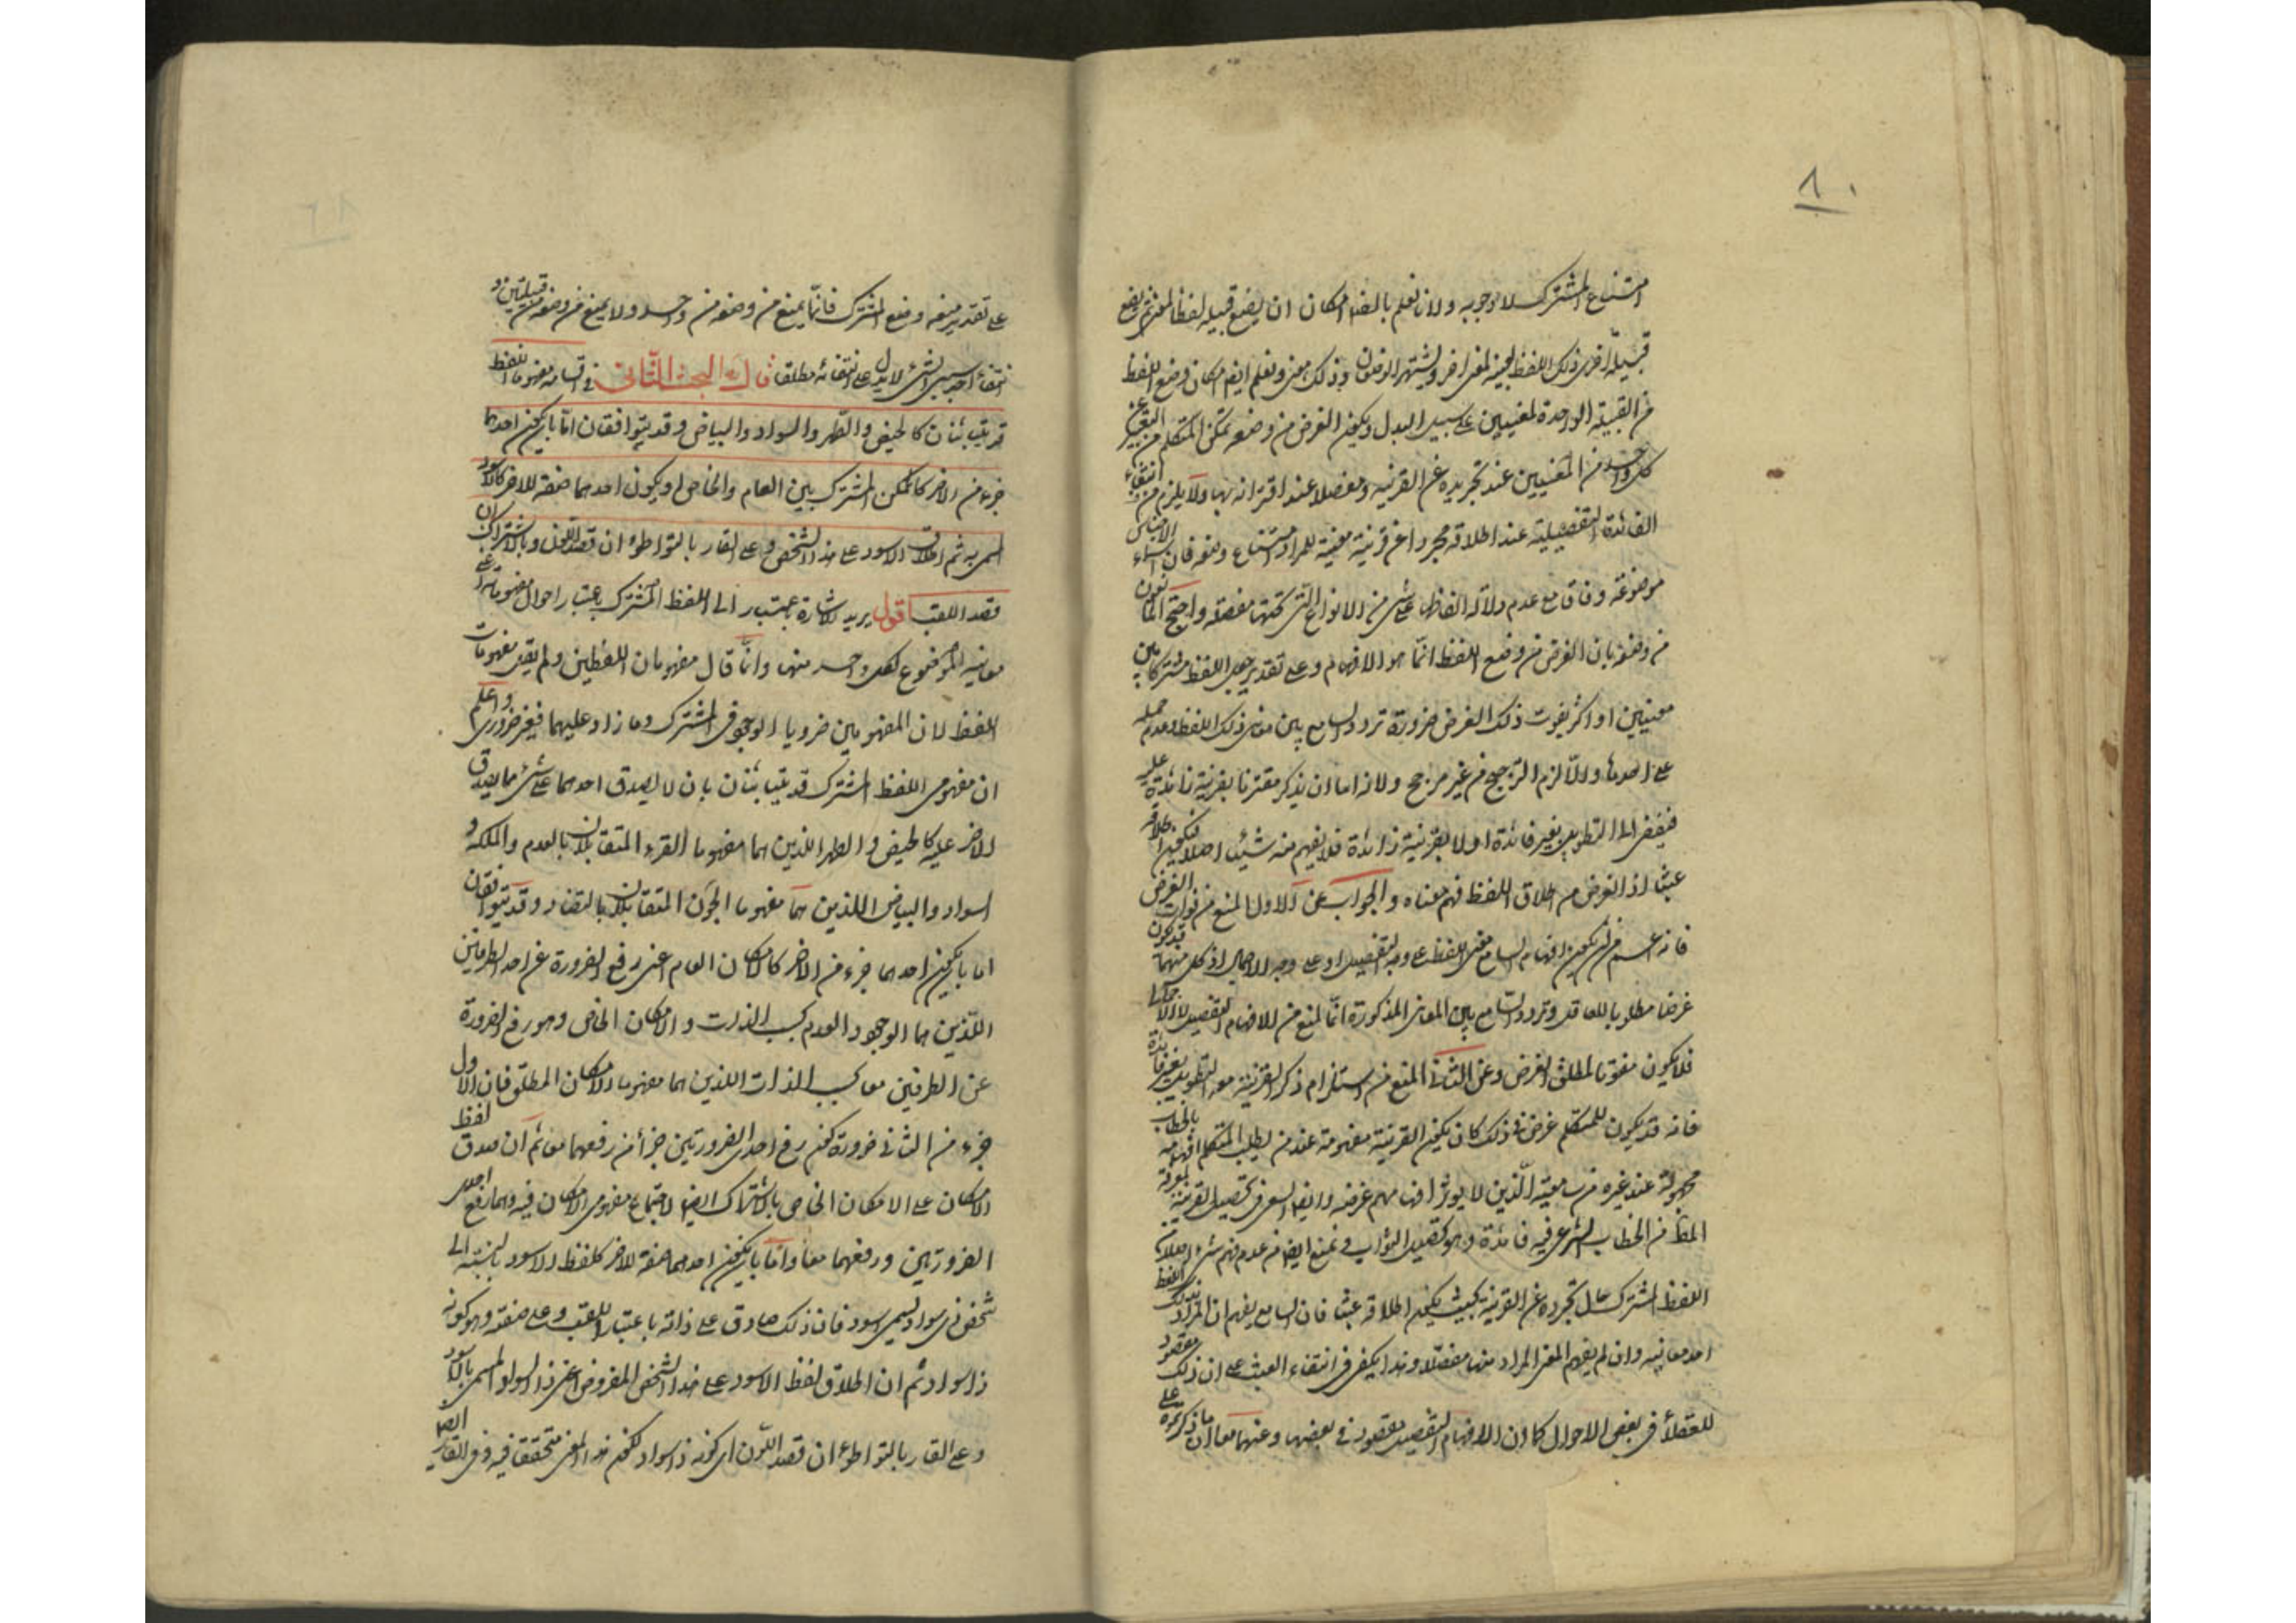 ٨٠
امتناع المشترك لا وجوبه ولانا نعلم بالضرورة امكان ان يضع قبيلة لفظا لمعنى ثم يضع
قبيلة اخرى ذلك اللفظ بعينه لمعنى اخر ويشتهر الوضعان وذلك معنى ونعلم ايضا امكان وضع اللفظ
من القبيلة الواحدة لمعنيين على سبيل البدل ويكون الغرض من وضعه تمكن المتكلم من التعبير عن
كل واحد من المعنيين عند تجريده عن القرينة ومفصلا عند اقترانه بها ولا يلزم من انتفاء
الفائدة التفصيلية عند اطلاقه مجردا عن قرينة معينة للمراد امتناع وضعه فان اسماء الاجناس
موضوعة وفاقا مع عدم دلالة الفاظها على شئ من الانواع التى تحتها مفصلة واحتج المانعون
من وضعه بان الغرض من وضع اللفظ انما هو الافهام وعلى تقدير جعل اللفظ مشتركا بين
معنيين او اكثر يفوت ذلك الغرض ضرورة تردد السامع بين معانى ذلك اللفظ وعدم حمله
على احدها والا لزم الترجيح من غير مرجح ولانه اما ان يذكر مقترنا بقرينة زائدة عليه
فيفضى الى التطويل بغير فائدة او لا بقرينة زائدة فلا يفهم منه شيئا اصلا فيكون اطلاقه
عبثا اذ الغرض من اطلاق اللفظ فهم معناه والجواب عن الاول المنع من فوات الغرض
فانه اعم من ان يكون افهام السامع معنى اللفظ على وجه التفصيل او على وجه الاجمال اذ كل منهما قد يكون
غرضا مطلوبا للعاقل وتردد السامع بين المعانى المذكورة انما يمنع من الافهام التفصيلى لا الاجمالى
فلا يكون مفوتا لمطلق الغرض وعن الثانى المنع من استلزام ذكر القرينة معه التطويل بغير فائدة
فانه قد يكون للمتكلم غرض فى ذلك كان يكون القرينة مفهومة عند من يطلب المتكلم افهامه بالخطاب
مجهولة عند غيره من سامعيه الذين لا يؤثر افهامهم غرضه وايضا السعى فى تحصيل القرينة لمعرفة
المط من الخطاب الشرعى فيه فائدة وهو تحصيل الثواب ونمنع ايضا من عدم فهم شئ من اطلاق
اللفظ المشترك حال تجرده عن القرينة بحيث يكون اطلاقه عبثا فان السامع يفهم ان المراد بذلك اللفظ
احد معانيه وان لم يفهم المعنى المراد منها مفصلا وهذا يكفى فى انتفاء العبث على ان ذلك مقصود
للعقلاء فى بعض الاحوال كما ان الافهام التفصيلى مقصود فى بعضها وعنهما معا ان ما ذكرتموه على
على تقدير منعه وضع المشترك فانما يمنع من وضعه من واحد ولا يمنع من وضعه من قبيلتين و
انتفاء احد سببى الشئ لا يدل على انتفائه مطلقا قال البحث الثانى فى اقسامه مفهوما اللفظ
قد يتباينان كالحيض والطهر والسواد والبياض وقد يتوافقان اما بان يكون احدهما
جزء من الاخر كالممكن المشترك بين العام والخاص او يكون احدهما صفة للاخر كالاسود
المسمى به ثم اطلاق الاسود على هذا الشخص وعلى القار بالتواطؤ ان قصد اللون وبالاشتراك ان
قصد اللقب اقول يريد الاشارة الى اللفظ المشترك باعتبار احوال مفهوماته اى
معانيه الموضوع لكل واحد منها وانما قال مفهومان اللفظين ولم يقل مفهومات
اللفظ لان المفهومين ضروريا الوجود فى المشترك وما زاد عليهما فغير ضرورى واعلم
ان مفهومى اللفظ المشترك قد يتباينان بان لا يصدق احدهما على شئ مما يصدق
الاخر عليه كالحيض والطهر اللذين هما مفهوما القرء المتقابلان بالعدم والملكة و
السواد والبياض اللذين هما مفهوما الجون المتقابلان بالتضاد وقد يتوافقان
اما بان يكون احدهما جزء من الاخر كالامكان العام اعنى رفع الضرورة عن احد الطرفين
اللذين هما الوجود والعدم بحسب الذات والامكان الخاص وهو رفع الضرورة
عن الطرفين معا بحسب الذات اللذين هما مفهوما الامكان المطلق فان الاول
جزء من الثانى ضرورة كون رفع احدى الضرورتين جزأ من رفعهما معا ثم ان صدق لفظ
الامكان على الامكان الخاص بالاشتراك ايضا لاجتماع مفهومى الامكان فيه وهما رفع احدى
الضرورتين ورفعهما معا واما بان يكون احدهما صفة للاخر كلفظ الاسود بالنسبة الى
شخص ذى سواد يسمى باسود فان ذلك صادق على ذاته باعتبار اللقب وعلى صفته وهو كونه
ذا سواد ثم ان اطلاق لفظ الاسود على هذا الشخص المفروض اعنى ذا السواد المسمى بالاسود
وعلى القار بالتواطؤ ان قصد اللون اى كونه ذا سواد لكون هذا المعنى متحققا فيه وفى القار ايضا